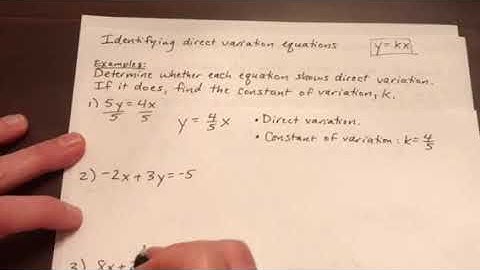 Identifying direct variation equations y = kx
Examples:
Determine whether each equation shows direct variation.
If it does, find the constant of variation, k.
1) 5y/5 = 4x/5
y = 4/5 x
• Direct variation.
• Constant of variation: k = 4/5
2) -2x + 3y = -5
3) 8x +